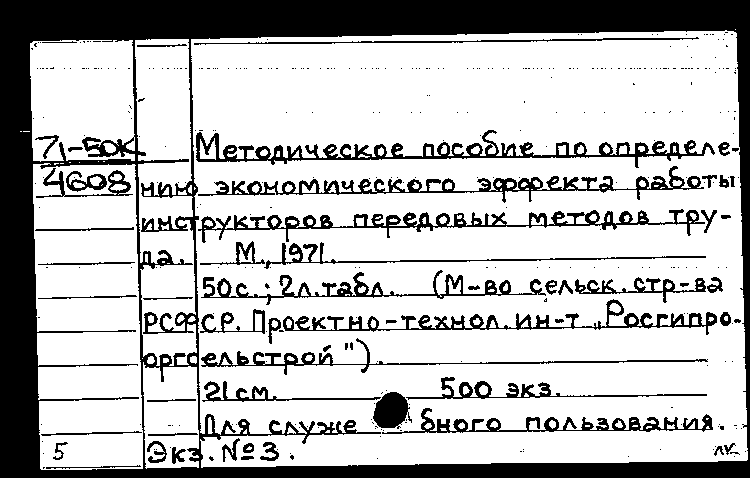 71-50К Методическое пособие по определе-
4608 нию экономического эффекта работы
инструкторов передовых методов тру-
да. М., 1971.
50с.; 2л.табл. (М-во сельск.стр-ва
РСФСР. Проектно-технол.ин-т „Росгипро-
оргсельстрой").
21см. 500 экз.
Для служебного пользования.
5 Экз. №3.